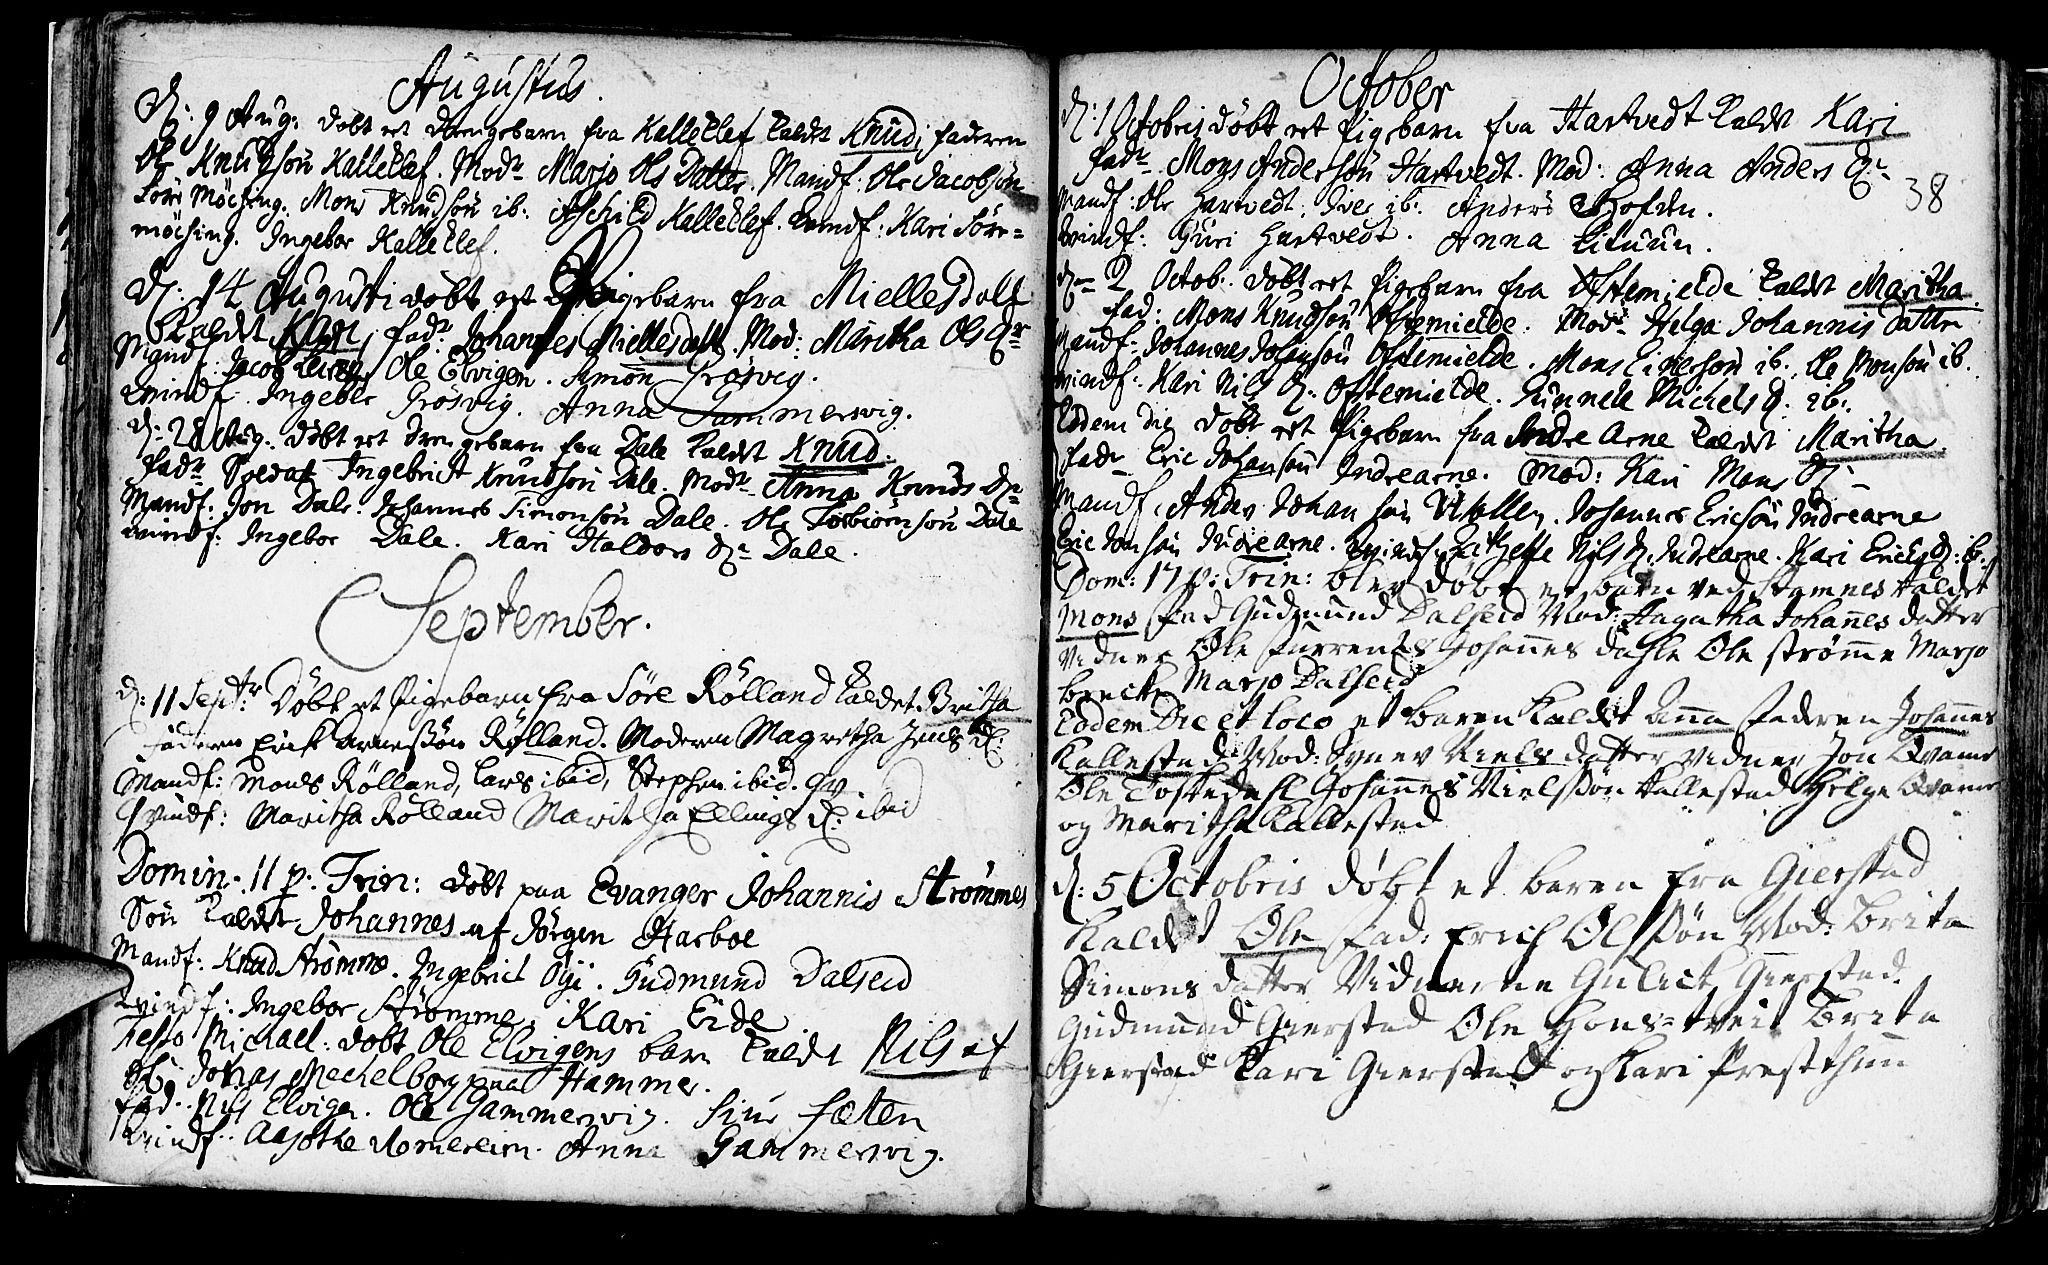 Augustus.
D: 9 Aug: döbt et drengebarn fra Kalleklef kaldt Knud, faderen
Ole Knudsön Kalleklef. Modr Marjo Ols Datter. Mandf: Ole Jacobsön
Söre Möching. Mons Knudsön ib: Aschild Kalleklef. Qvindf: Kari Söre=
möching. Ingebor Kalleklef.
D: 14 Augusti döbt et Pigebarn fra Miellesdalf
Kaldet Kari, fadr Johannes Miellesdall. Mod: Maritha Ols Dr
Mandf: Jacob Ole Elvigen. Simon Trösvig.
Qvindf: Ingebor Trösvig. Anna Gammersvig.
D: 28 Aug. döbt et drengebarn fra Dale kaldt Knud.
fadr Soldat Ingebrict Knudsön Dale. Modr Anna Knuds Dr
Mandf. Jon Dale. Johannes Simonsön Dale. Ole Torbiörnsön Dale
Qvindf: Ingebor Dale. Kari Haldors Dr Dale.
September.
d: 11 Septr: Döbt et Pigebarn fra Söre Rölland kaldet Britha
faderen Erick Arnessön Rölland. Moderen Magretha Jens d:
Mandf: Mons Rölland, Lars ibid, Stephen ibid. qv
qvindf: Maritha Rölland Maritha Ellings d: ibid
Domin. 11 p. Trin: döbt paa Evanger Johannis Strömmes
Sön kaldt Johannes af Jörgen Harboe
Mandf: Knud Strömme. Ingebrict Gudmund Dalseid
Qvindf: Ingebor Strömme, Kari Eide
Festo Michael: döbt Ole Elvigens barn kaldt Nils af
Hr Jonas Mechelborg paa Hammer.
fad. Nils Elvigen. Ole Gammersvig. Siur Sæten
Qvindf: Aagothe Romereim. Anna Gammersvig.
October
38
D: 1 Octobris döbt et Pigebarn fra Hartvedt kaldt Kari
fadr Mons Andersön Hartvedt. Mod: Anna Anders Dr
Mandf: Ole Hartvedt, Iver ib: Anders Hofden.
Qvindf: Guri Hartvedt. Anna
D: 2 Octob: döbt et Pigebarn fra Ostemielde kaldt Maritha.
fad: Mons Knudsön Ostemielde. Modr Helga Johannis Datter
Mandf: Johannes Johansön Ostemielde. Mons Einersön ib. Ole Monsön ib.
Qvindf: Kari Nils D. Ostemielde. Gunnele Michels D: ib.
Eodem die döbt et Pigebarn fra Indre Arne kaldt Maritha
fadr Eric Johansön Indrearne. Mod: Kari Mons D:
Mandf: Anders Johansön Johannes Ericsön Indrearne
Eric Jonsön Indrearne. Qvindf: Nils D. Indrearne. Kari Ericks D: ib.
Dom: 17 p: Trin: blev döbt et barn ved Stamnes kaldt
Mons fad Gudmund Dalseid Mod: Hagatha Johannes datter
Vidner Ole Furrenes Johannes Dahle Ole strömme Marjo
Brecke Marjo Dalseid
Eodem Die et loco et baren kaldet Anna fadren Johannes
Kallestad Mod: Synev Niels datter vidner Jon Qvame
Ole Tostedahl Johannes Nielssön Kallestad Helge Qvame
og Maritha Kallestad
d: 5 Octobris döbt et baren fra Gierstad
kaldet Ole fad: Erich Olssön Mod: Brita
Simons datter Vidnerne Gulick Gierstad.
Gudmund Gierstad Ole Hons=tveit Brita
Gierstad Kari Gierstad og Kari Presthun